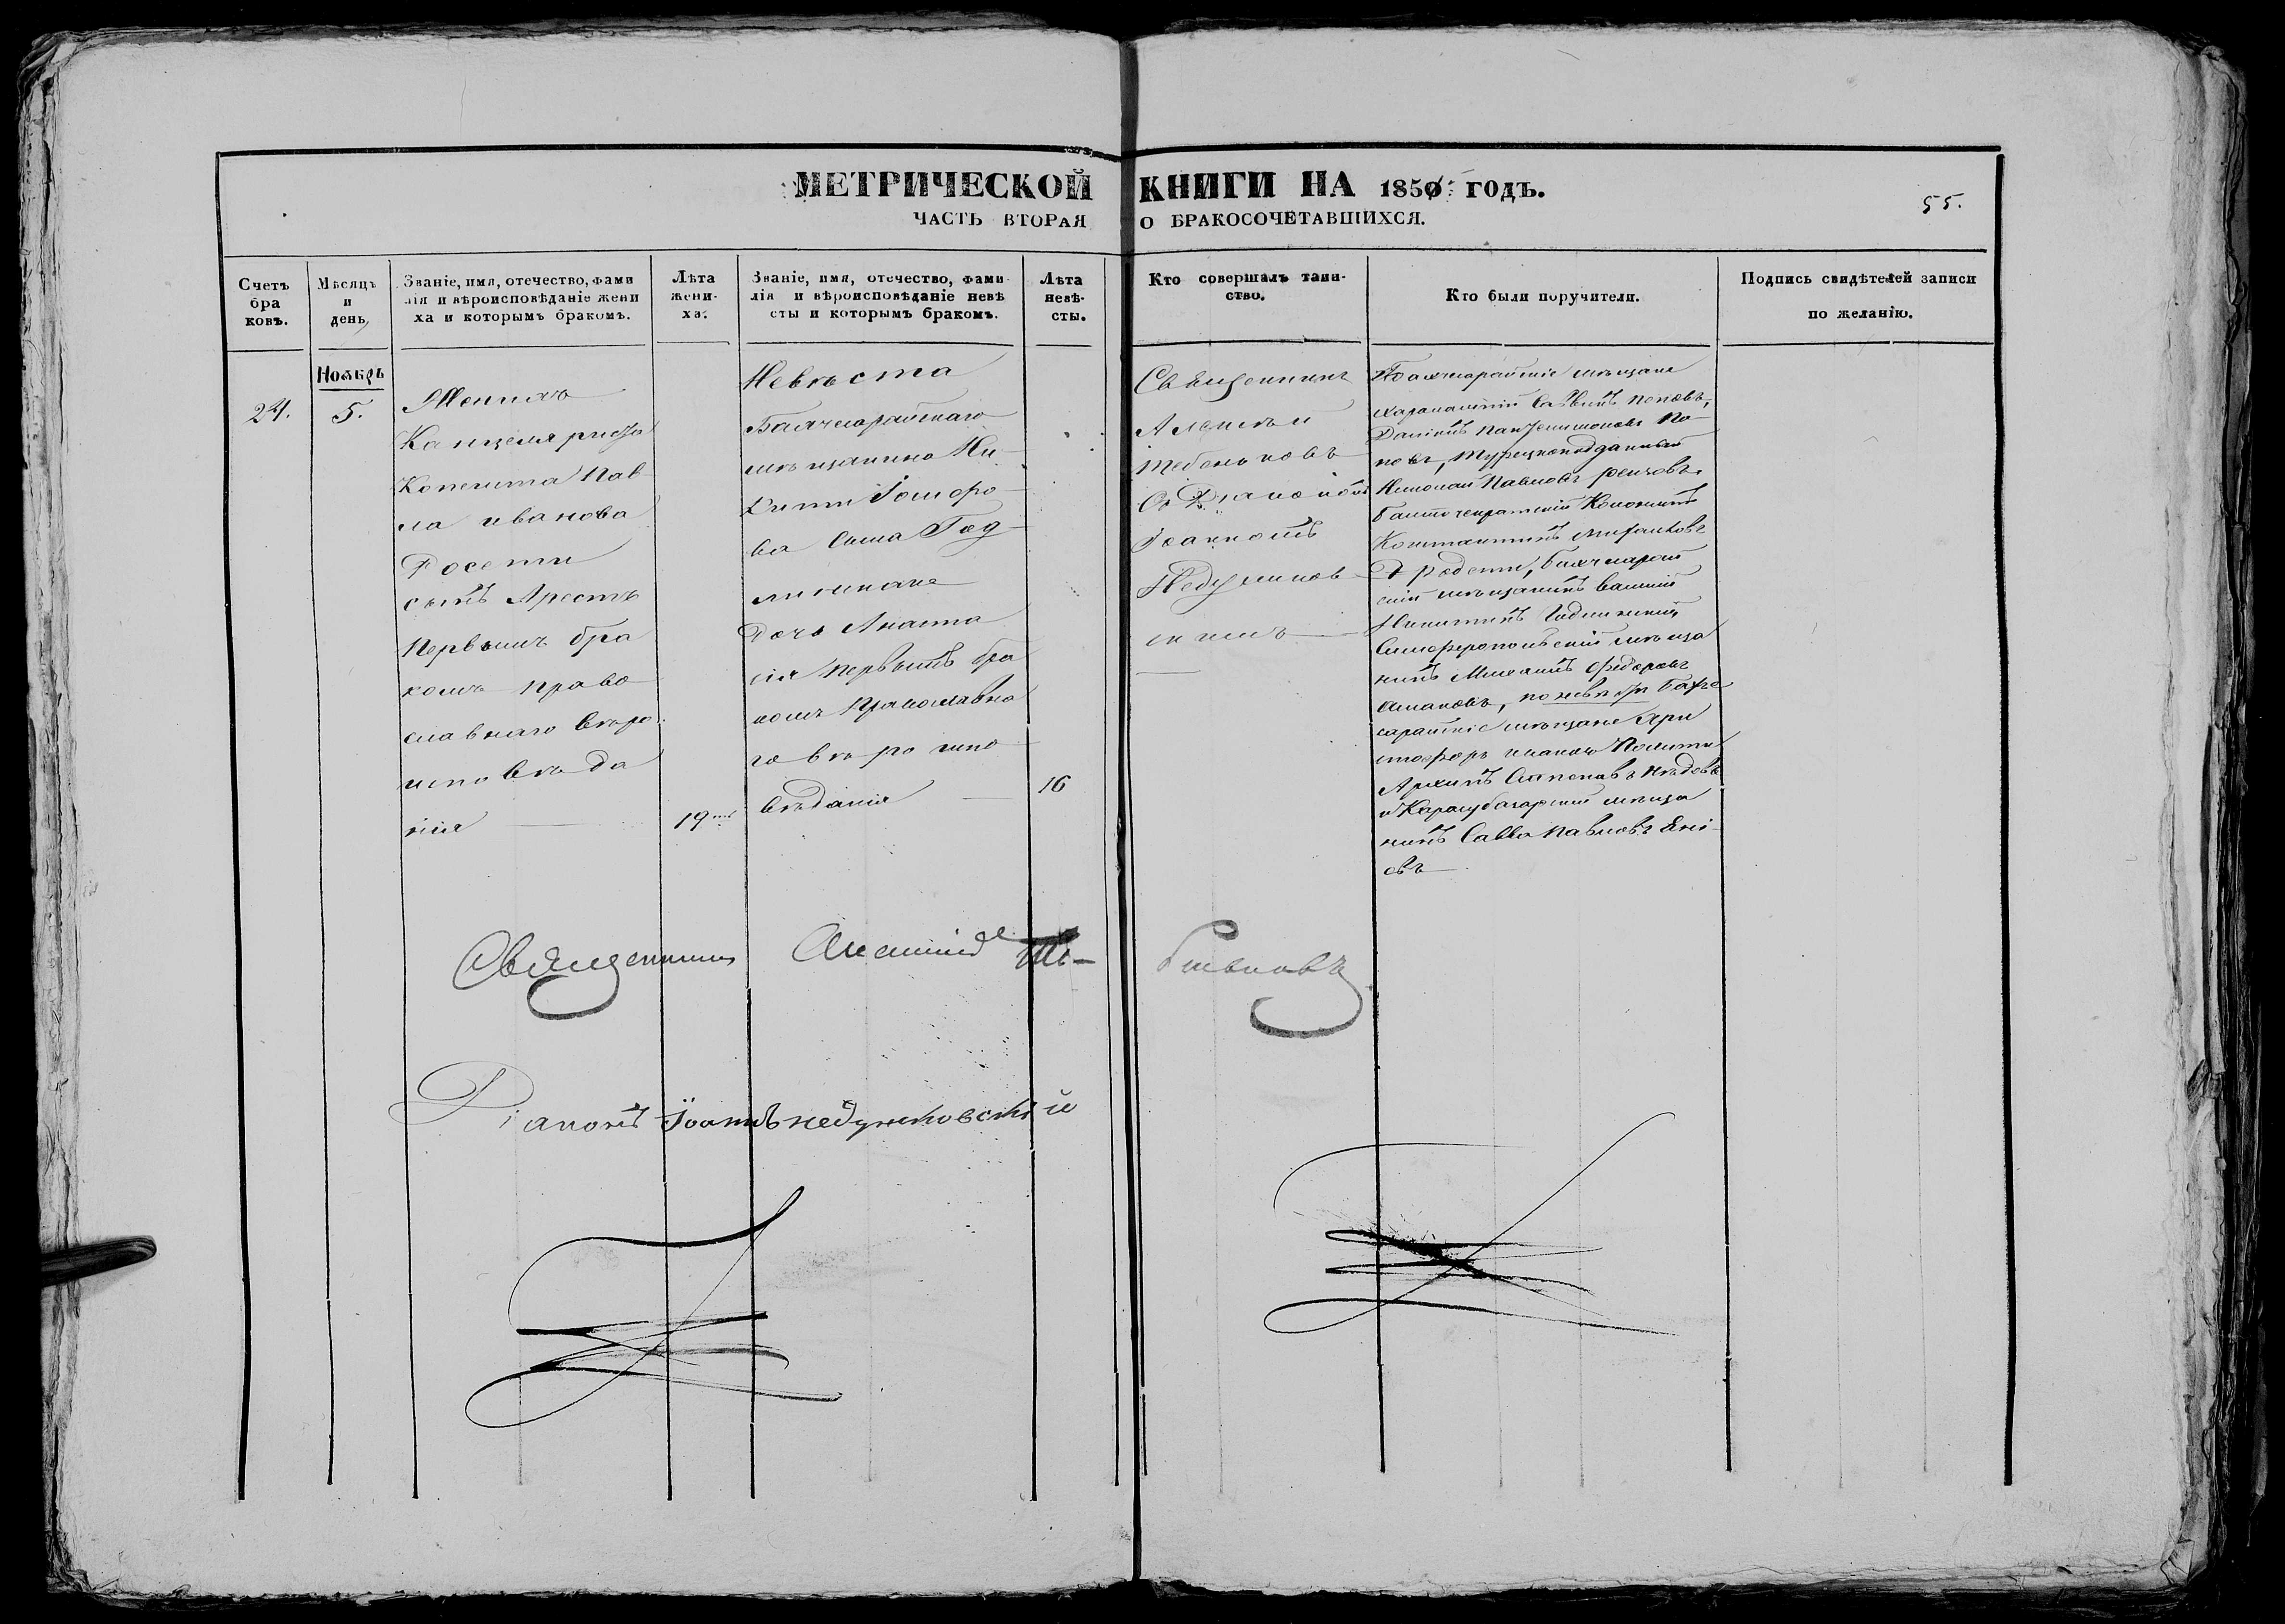 МЕТРИЧЕСКОЙ КНИГИ НА 1850 ГОДЪ.
ЧАСТЬ ВТОРАЯ О БРАКОСОЧЕТАВШИХСЯ.
55.
Счетъ
бра
ковъ.
Мѣсяцъ
и
день,
Званіе, имя, отечество, фами
лія и вѣроисповѣданіе жени
ха и которымъ бракомъ.
Лѣта
жени-
ха.
Званіе, имя, отечество, фами-
лія и вѣроисповѣданіе невѣ
сты и которымъ бракомъ.
Лѣта
невѣ-
сты.
Кто совершалъ таин-
ство.
Кто были поручители.
Подпись свидѣтелей записи
по желанію.
24.
Ноябрь
5.
Женихъ
Канцеляриста
Копеиста Пав
ла Иванова
Росети
сынъ Арестъ
Первымъ бра
комъ право
славнаго вѣро
исповѣда
нія
19
Невѣста
Бахчисарайскаго
мѣщанина Ни-
китин
ва сына Год
Дочь Анаста
сія первымъ бра
комъ Православна
го вѣро испо
вѣданія
16
Священникъ
Алексѣй
Тебеньковъ
Съ Діакономъ
Іоанномъ
Недзелков
скимъ
Бахчисарайскіе мѣщане
Харлампій Поповъ,
По-
повъ, Турецкоподданный
Николай Павловъ
Колонистъ
Константинъ Михайловъ
Бахчисарай
скій мѣщанинъ Василій
Никитинъ
Симферопольскій мѣща
нинъ Михаилъ Федоровъ
по невѣстѣ Бахчи
сарайскіе мѣщане Хри
стофоръ
Архипъ
и Карасубазарскій мѣща
нинъ Савва Павловъ Ені-
овъ
Священникъ Алексій Те- беньковъ
Діаконъ Іоаннъ